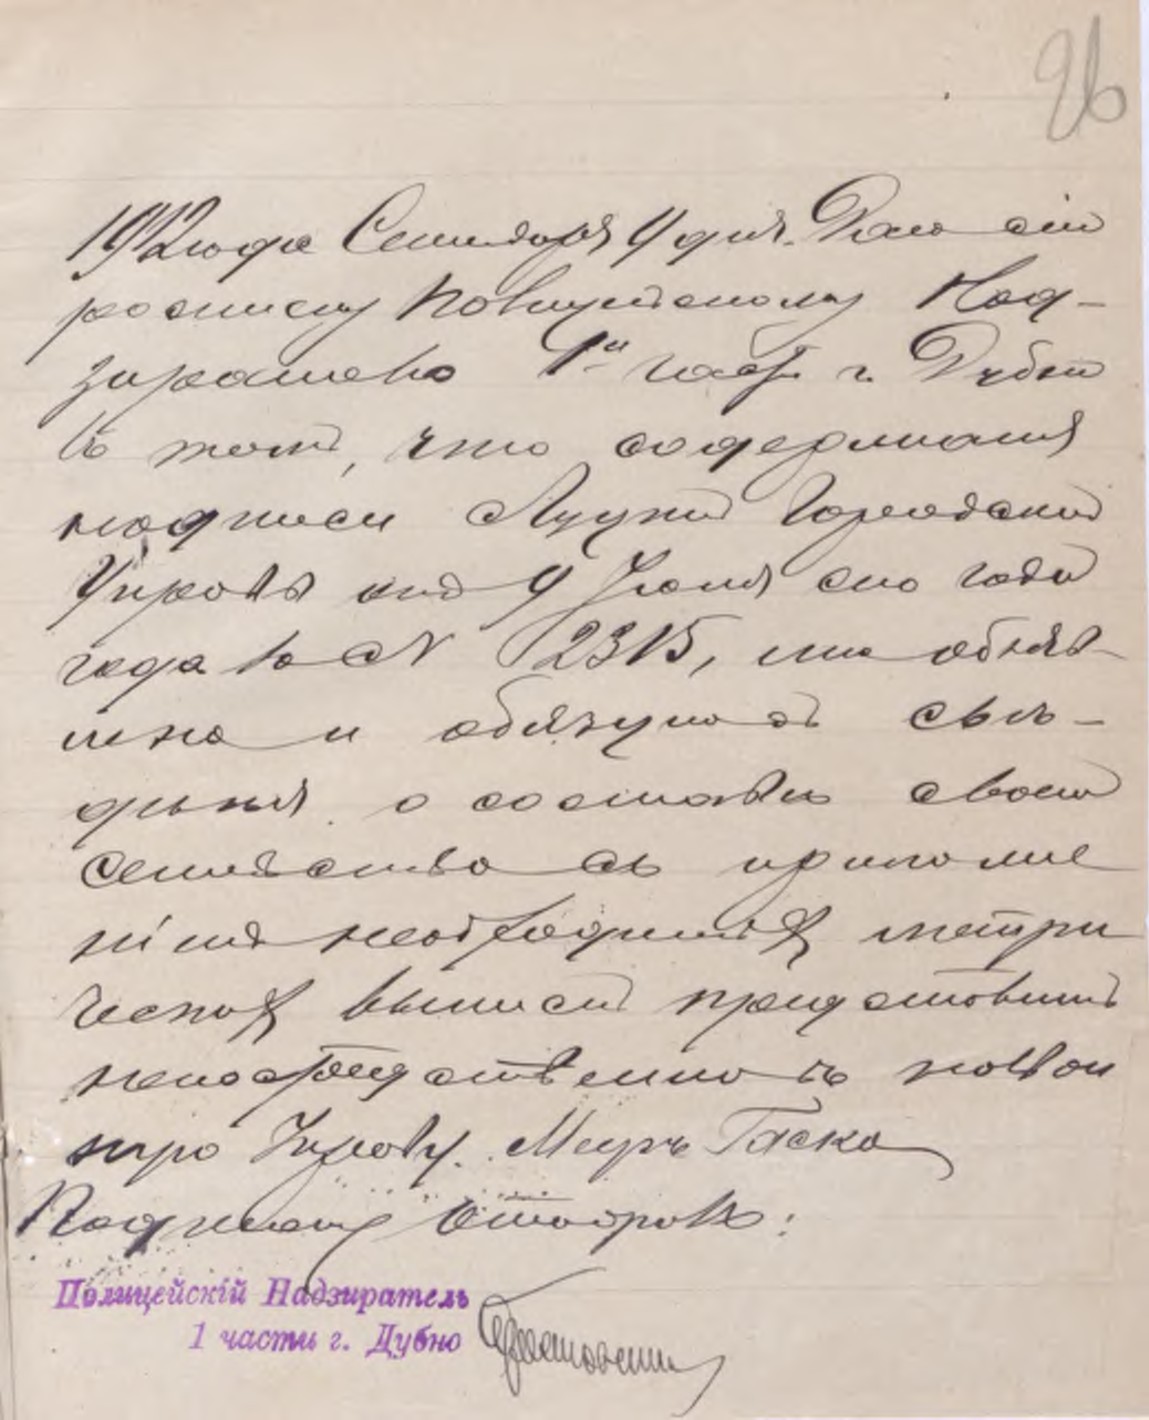 26
1912 года Сентября 9 дня. Даю сію
росписку Полицейскому Над-
зирателю 1й части г. Дубно
въ томъ, что содержанія
надписи Луцкой Городской
Управы отъ 9 Іюня сего года
года за № 2315, мнѣ объяв-
лено и обязуюсь свѣ-
дѣнія о составѣ своего
семейства съ приложе
ніемъ необходимыхъ метри
ческихъ выписей представить
непосредственно въ
Управу. Меиръ Гаска
Подписку отобралъ:
Полицейскій Надзиратель
1 части г. Дубно